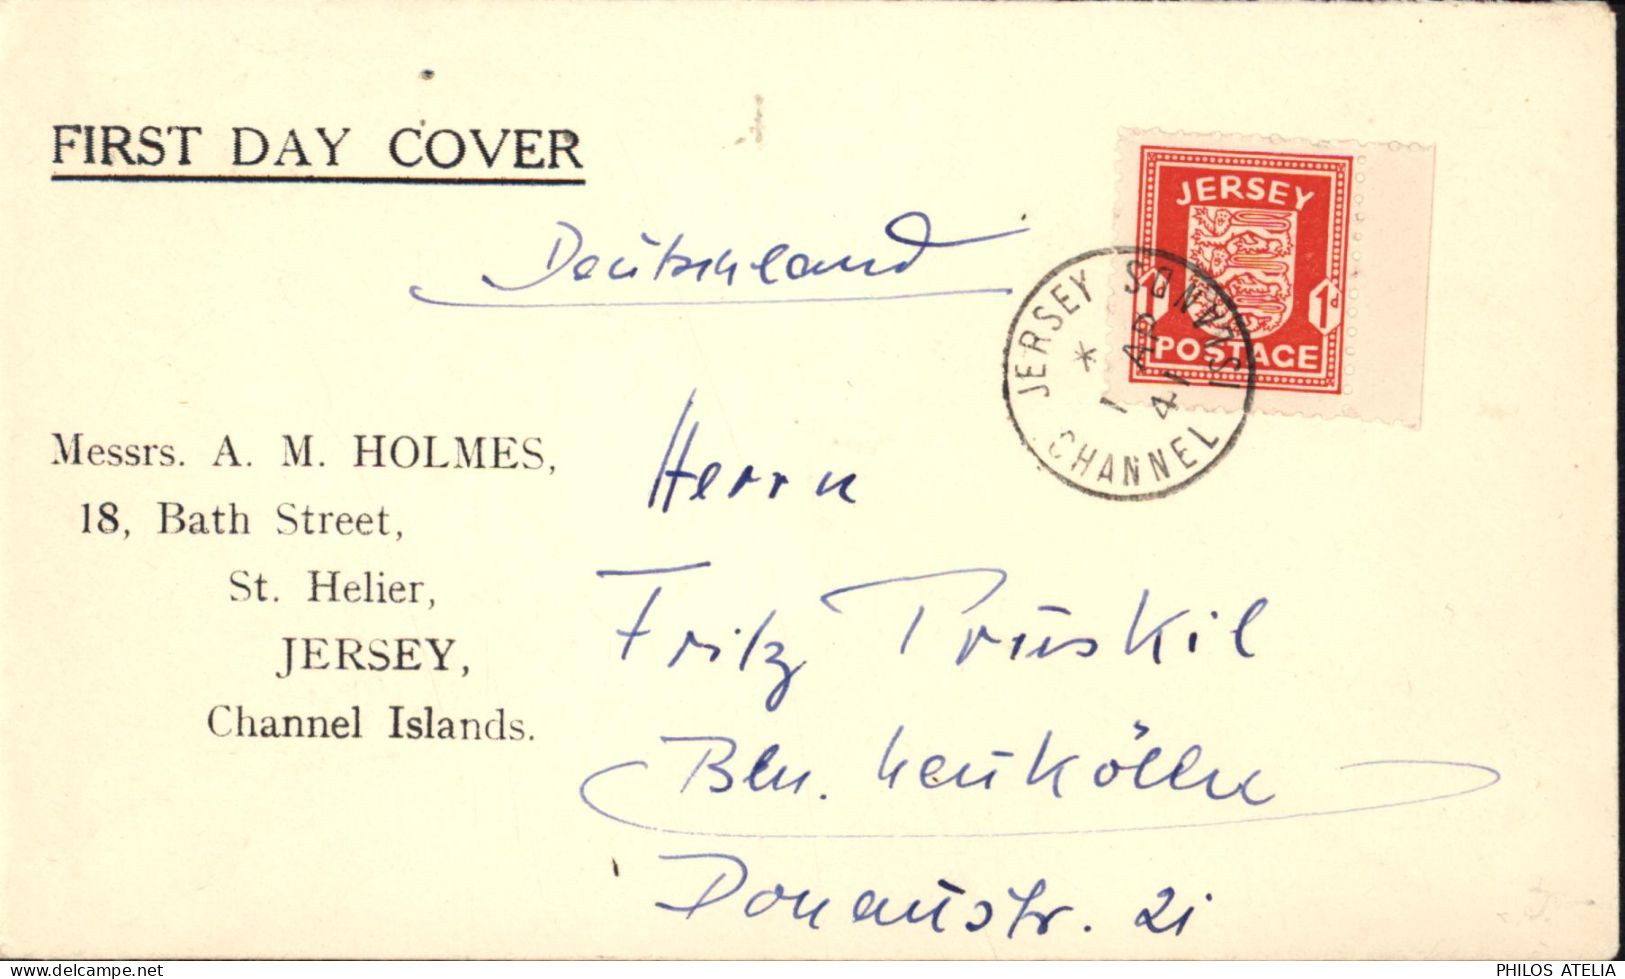 FIRST DAY COVER
Deutschland
JERSEY
1d
POSTAGE
JERSEY CHANNEL ISLANDS
* 1 AP 41
Messrs. A. M. HOLMES,
18, Bath Street,
St. Helier,
JERSEY,
Channel Islands.
Herrn
Fritz Prüskil
Bln. Neukölln
Donaustr. 21
PHILOS ATELIA